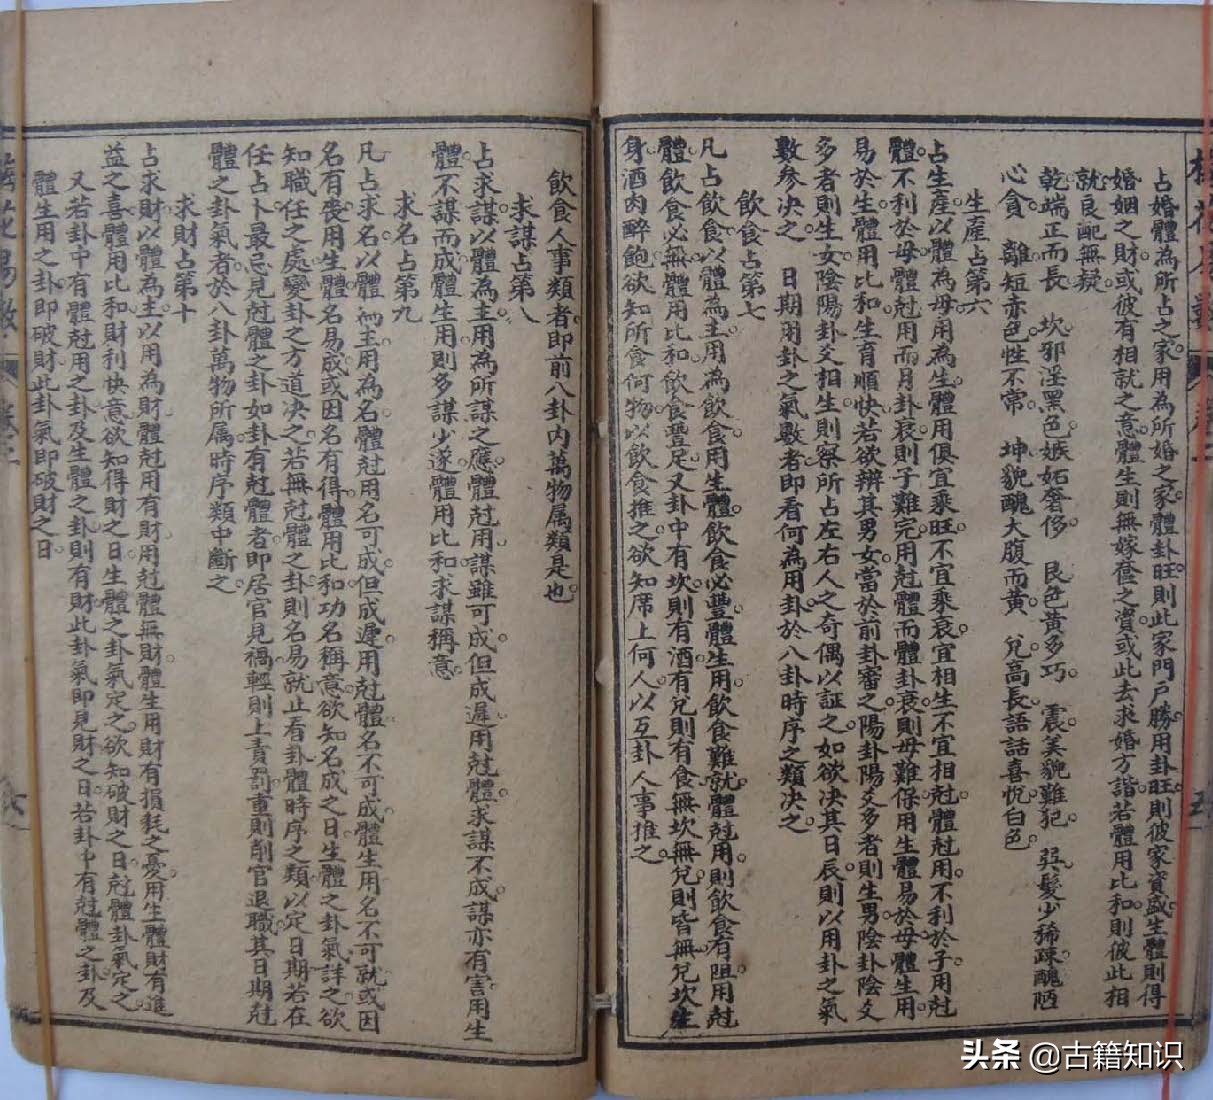 占婚體為所占之家用為所婚之家體卦旺則此家門戶勝用卦旺則彼家資盛生體則得
婚姻之財或彼有相就之意體生則無嫁奩之資或此去求婚方諧若體用比和則彼此相
就良配無疑
乾端正而長 坎邪淫黑色嫉妬奢侈 艮色黃多巧 震美貌難犯 巽髮少稀疎醜陋
心貪 離短赤色性不常 坤貌醜大腹而黃 兌高長語話喜悅白色
生產占第六
占生產以體為母用為生體用俱宜乘旺不宜乘衰宜相生不宜相尅體尅用不利於子用尅
體不利於母體尅用而用卦衰則子難完用尅體而體卦衰則母難保用生體易於母體生用
易於生體用比和生育順快若欲辨其男女當於前卦審之陽卦陽爻多者則生男陰卦陰爻
多者則生女陰陽卦爻相生則察所占左右人之奇偶以証之如欲決其日辰則以用卦之氣
數參決之 日期用卦之氣數者即看何為用卦於八卦時序之類決之
飲食占第七
凡占飲食以體為主用為飲食用生體飲食必豐體生用飲食難就體尅用則飲食有阻用尅
體飲食必無體用比和飲食豐足又卦中有坎則有酒有兌則有食無坎無兌則皆無兌坎生
身酒肉醉飽欲知所食何物以飲食推之欲知席上何人以互卦人事推之
飲食人事類者即前八卦內萬物属類是也
求謀占第八
占求謀以體為主用為所謀之應體尅用謀雖可成但成遲用尅體求謀不成謀亦有害用生
體不謀而成體生用則多謀少遂體用比和求謀稱意
求名占第九
凡占求名以體為主用為名體尅用名可成但成遲用尅體名不可成體生用名不可就或因
名有喪用生體名易成或因名有得體用比和功名稱意欲知名成之日生體之卦氣詳之欲
知職任之處變卦之方道決之若無尅體之卦則名易就止看卦體時序之類以定日期若在
任占卜最忌見尅體之卦如卦有尅體者即居官見禍輕則上責罰重則削官退職其日期尅
體之卦氣者於八卦萬物所属時序類中斷之
求財占第十
占求財以體為主以用為財體尅用有財用尅體無財體生用財有損耗之憂用生體財有進
益之喜體用比和財利快意欲知得財之日生體之卦氣定之欲知破財之日尅體卦氣定之
又若卦中有體尅用之卦及生體之卦則有財此卦氣即見財之日若卦中有尅體之卦及
體生用之卦即破財此卦氣即破財之日
头条 @古籍知识